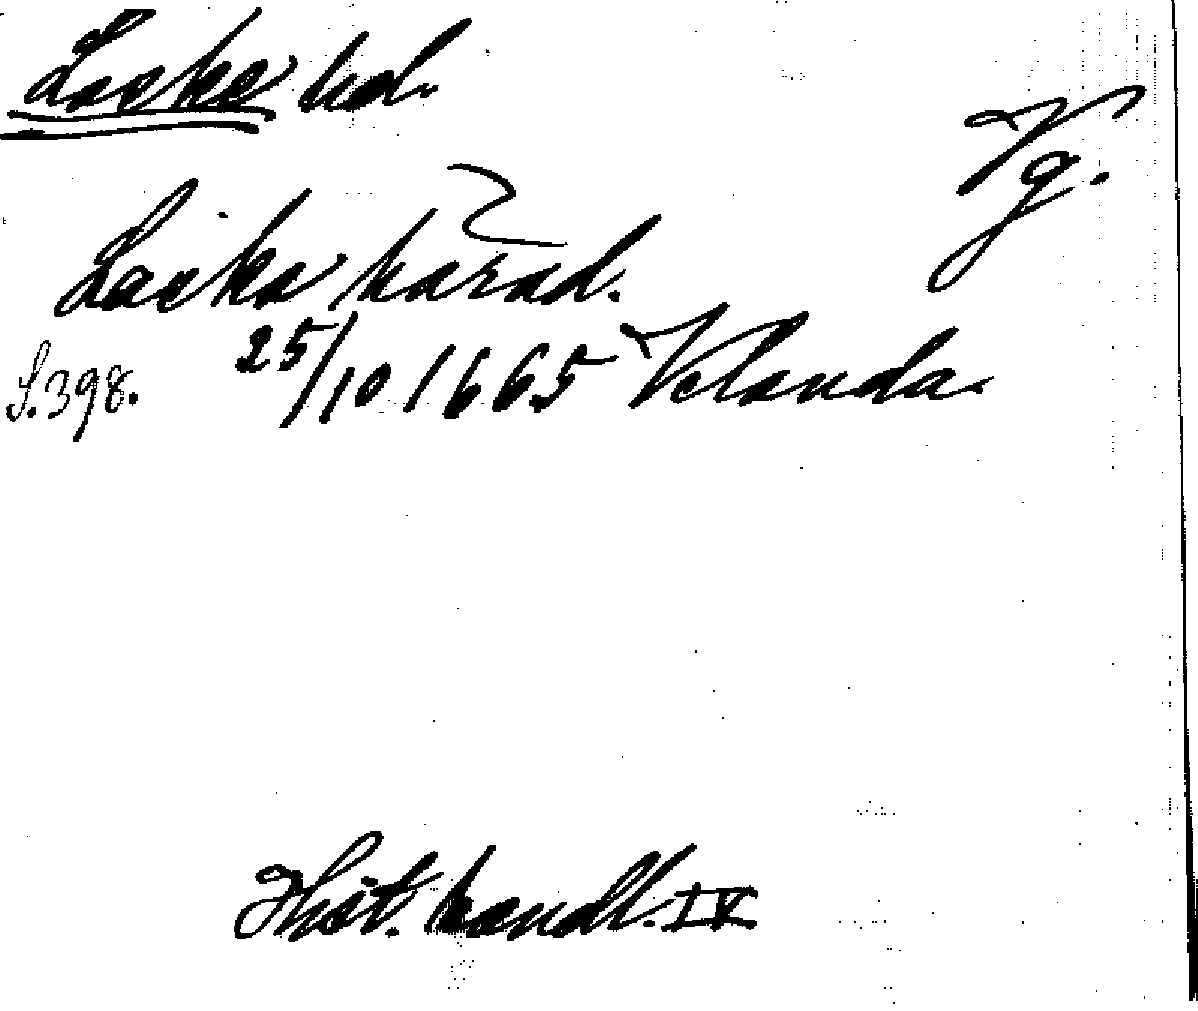 Laske hd.
Vg.
Laska härad.
S. 398. 25/10 1665 Velanda.
Hist. handl. IV